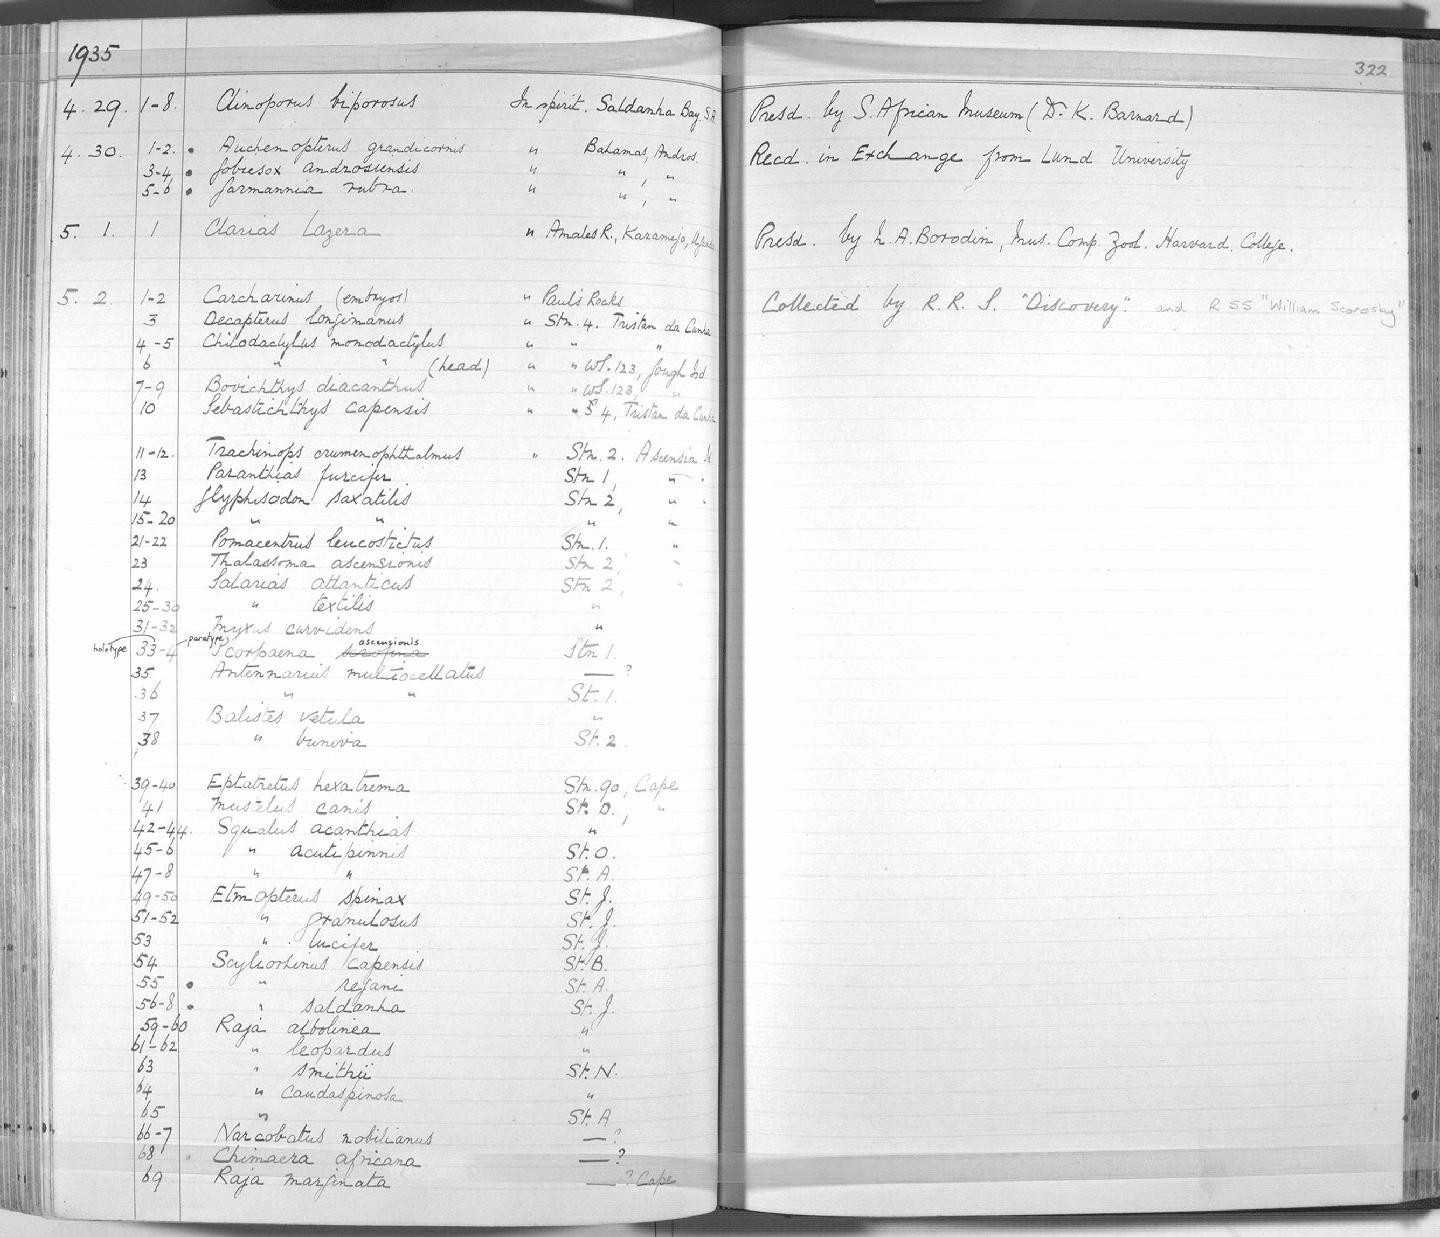 1935
322
4. 29. 1-8. Clinoporus biporosus In spirit. Saldanha Bay. S.A. Presd. by S. African Museum (Dr. K. Barnard)
4. 30. 1-2. • Auchenopterus grandicornis " Bahamas, Andros. Recd. in Exchange from Lund University
3-4. • Gobiesox androsiensis " " , "
5-6 • Garmannia rubra. " " , "
5. 1. 1 Clarias lazera " Amales R., Karamojo, Presd. by N.A. Borodin, Mus. Comp. Zool. Harvard College.
5. 2. 1-2 Carcharinus (embryos) " Paul's Rocks Collected by R.R.S. "Discovery". and RSS "William Scoresby"
3 Decapterus longimanus " Stn. 4. Tristan da Cunha
4-5 Chilodactylus monodactylus " " "
6 " " (head) " " WS.123, Gough Isd.
7-9 Bovichthys diacanthus " " WS.123, "
10 Sebastichthys capensis " " S 4, Tristan da Cunha
11-12. Trachinops crumenophthalmus " Stn. 2. Ascension
13 Paranthias furcifer Stn 1, "
14 Glyphisodon saxatilis Stn 2, " "
15-20 " " " "
21-22 Pomacentrus leucostictus Stn. 1. "
23 Thalassoma ascensionis Stn 2, "
24. Salarias atlanticus Stn 2, "
25-30 " textilis "
31-32 Myxus curvidens "
holotype 33-4 paratype Scorpaena scrofina ascensionis Stn 1.
35 Antennarius multiocellatus — ?
36 " " St. 1.
37 Balistes vetula "
38 " buniva St. 2
39-40 Eptatretus hexatrema Stn. 90, Cape
41 Mustelus canis St. D. , "
42-44. Squalus acanthias "
45-6 " acutipinnis St. O.
47-8 " " St. A.
49-50 Etmopterus spinax St. J.
51-52 " granulosus St. J.
53 " lucifer St. J.
54 Scyliorhinus capensis St. B.
55 • " regani St. A.
56-8 • " saldanha St. J.
59-60 Raja albolinea "
61-62 " leopardus "
63 " smithii St. N.
64 " caudaspinosa "
65 " St. A
66-7 Narcobatus nobilianus — ?
68 Chimaera africana — ?
69 Raja marginata — ? Cape